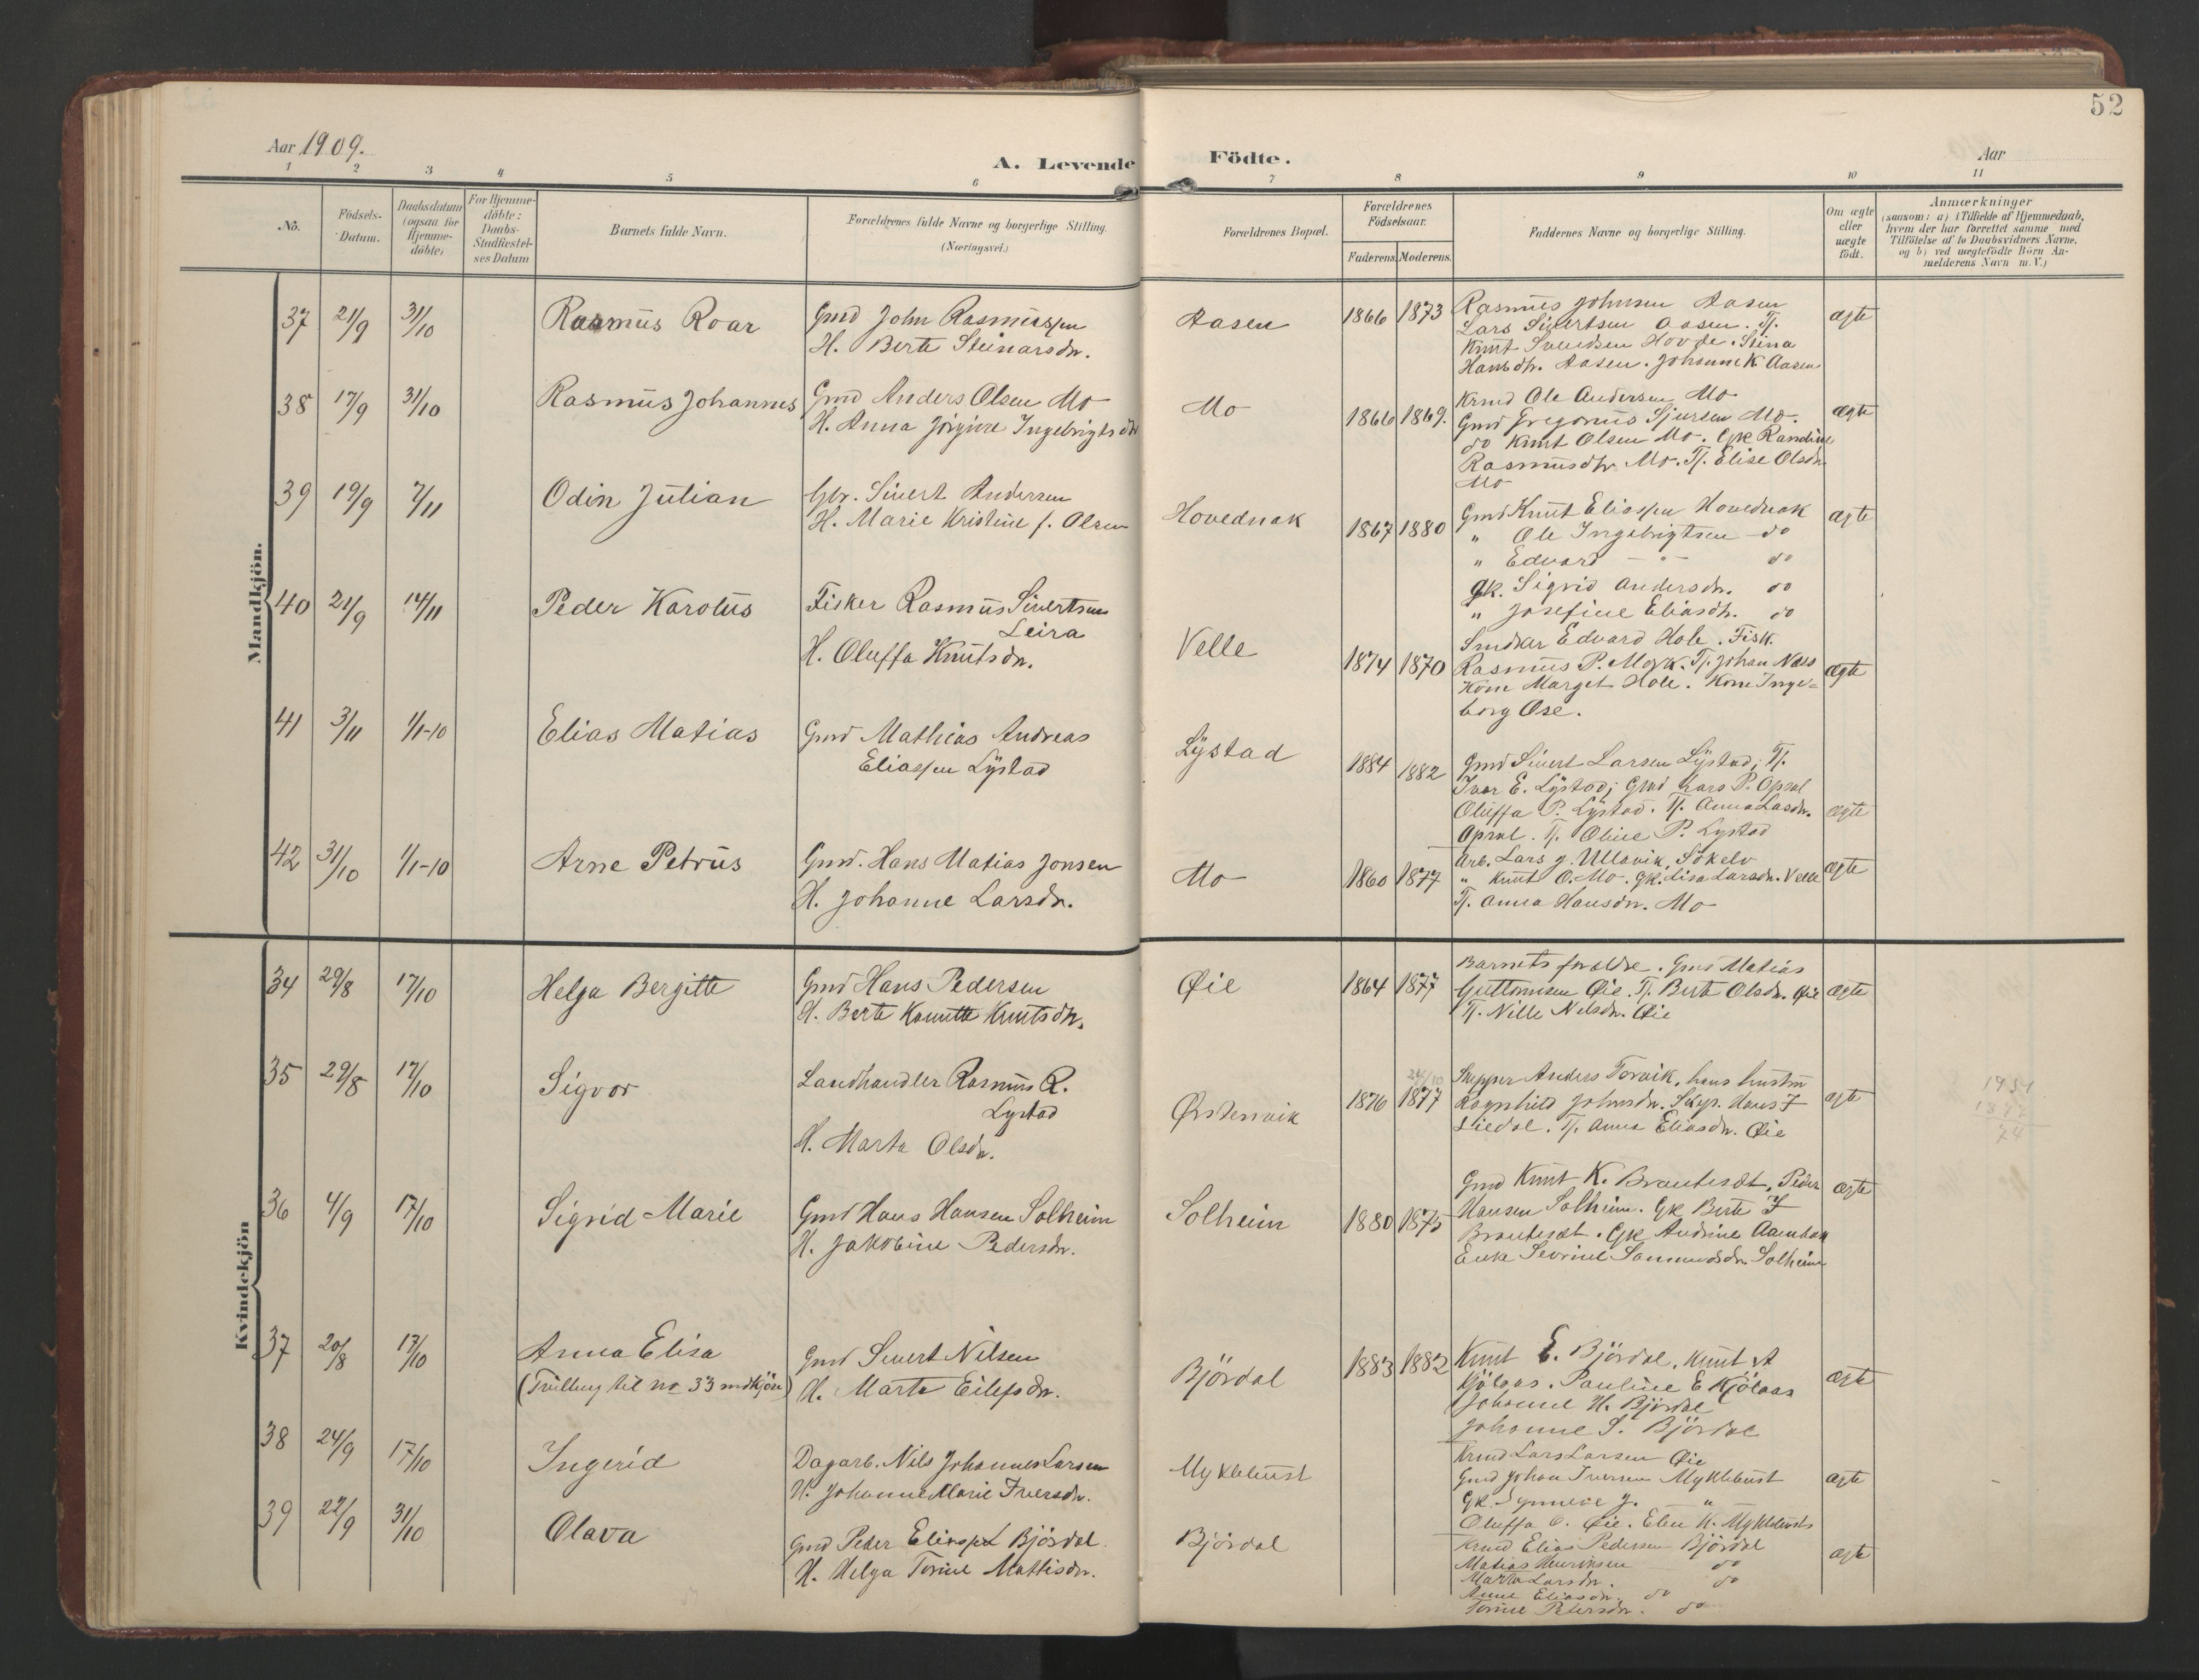 52
Aar 1909.
A. Levende Födte.
Aar
1 2 3 4 5 6 7 8 9 10 11
No.
Födsels-
Datum.
Daabsdatum
(ogsaa för
Hjemme-
döbte)
For Hjemme-
döbte:
Daabs-
Stadfæstel-
ses Datum
Barnets fulde Navn.
Forældrenes fulde Navne og borgerlige Stilling.
(Næringsvei.)
Forældrenes Bopæl.
Forældrenes
Födselsaar.
Faderens. Moderens.
Faddernes Navne og borgerlige Stilling.
Om ægte
eller
uægte
födt.
Anmærkninger
(saasom: a) i Tilfælde af Hjemmedaab,
hvem der har forrettet samme med
Tilföielse af to Daabsvidners Navne,
og b) ved uægtefödte Börn An-
melderens Navn m. V.)
Mandkjön.
37 21/9 31/10 Rasmus Roar
Gmd John Rasmussen
H. Berte Steinarsdr.
Aasen 1866 1873
Rasmus Johnsen Aasen
Lars Sivertsen Aasen. Tj.
Knut Svendsen Hovde. Stina
Hansdtr. Aasen. Johanne K Aasen
ægte
38 17/9 31/10 Rasmus Johannes
Gmd Anders Olsen Mo
H. Anna Jörgine Ingebrigtsdtr
Mo 1866 1869.
Krmd Ole Andersen Mo
Gmd Gregorius Sjursen Mo.
do Knut Olsen Mo. Gk Randine
Rasmusdtr Mo. Tj. Elise Olsdr.
Mo
ægte
39 19/9 7/11 Odin Julian
Gbr. Sivert Andersen
H. Marie Kristine f. Olsen
Hovednak 1867 1880
Gmd Knut Eliassen Hovednak
" Ole Ingebrigtsen do
" Edvard - " - do
Gk. Sigrid Andersdr. do
" Josefine Eliasdtr. do
ægte
40 21/9 14/11 Peder Karolus
Fisker Rasmus Sivertsen
Leira
H. Oluffa Knutsdr.
Velle 1874 1870
Snedker Edvard Hole. Fisk.
Rasmus P. Mork. Tj. Johan Næss
Kone Marget Hole. Kone Inge-
borg Ose.
ægte
41 3/11 1/1-10 Elias Matias
Gmd Mathias Andreas
Eliassen Lystad
Lystad 1884 1882
Gmd Sivert Larsen Lystad; Tj.
Ivar E. Lystad; Gmd Lars P. Opsal
Oluffa P. Lystad. Tj. Anna Lasdr.
Opsal. Tj. Oline P. Lystad
ægte
42 31/10 1/1-10 Arne Petrus
Gmd. Hans Matias Jonsen
H. Johanne Larsdr.
Mo 1860 1877
Arb. Lars J. Ullavik, Sökelv
" Knut O. Mo. Gk. Lisa Larsdr. Velle
Tj. Anna Hansdr. Mo
ægte
Kvindekjön
34 29/8 17/10 Helga Bergitte
Gmd Hans Pedersen
H. Berte Kanutte Knutsdtr.
Öie 1864 1877
Barnets foraldre. Gmd Matias
Guttormsen Öie. Tj. Berte Olsdr. Öie
Tj. Nille Nilsdr. Öie
ægte
35 29/8 17/10 Sigvor
Landhandler Rasmus R.
Lystad
H. Marta Olsdr.
Örstenvik 1876 1877
Skipper Anders Torvik, hans hustru
Ragnhild Johnsdr. Skip. Hans J
Liedal. Tj. Anna Eliasdr. Öie
ægte
36 4/9 17/10 Sigrid Marie
Gmd Hans Hansen Solheim
H. Jakobine Pedersdr.
Solheim 1880 1875
Gmd Knut K. Brautesæt, Peder
Hansen Solheim. Gk Berte J
Brautesæt. Gk Andrine Aambak
Enke Sevrine Samundsdr. Solheim
ægte
37 20/8 17/10 Anna Elisa
(Tvilling til no 33 mdkjön)
Gmd Sivert Nilsen
H. Marte Eilefsdr.
Björdal 1883 1882
Knut E. Björdal, Knut A
Kjölaas. Pauline E Kjölaas
Johanne H. Björdal
Johanne S. Björdal
ægte
38 24/9 17/10 Ingerid
Dagarb. Nils Johannes Larsen
H. Johanne Marie Iversdr.
Myklebust
Krmd Lars Larsen Öie
Gmd Johan Iversen Myklebust
Gk. Synneve J. "
Oluffa O. Öie. Elen K. Myklebust
ægte
39 22/9 31/10 Olava
Gmd Peder Eliassen Björdal
H. Helga Torine Mattisdr.
Björdal
Krmd Elias Pedersen Björdal
Matias Henriksen do
Marta Larsdr. do
Anne Eliasdr. do
Torine Petersdr. do
ægte